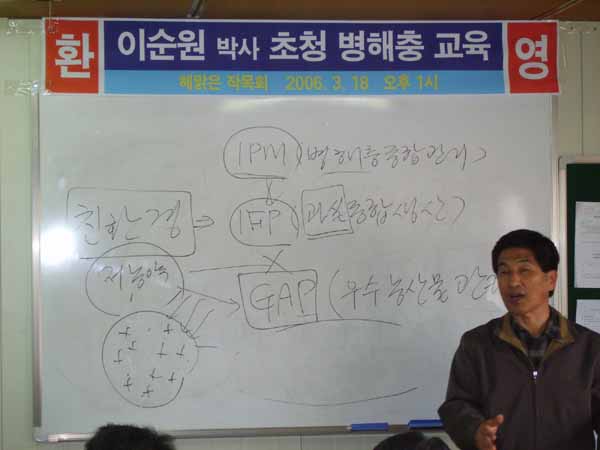 환 이순원 박사 초청 병해충 교육 영
해맑은 작목회 2006. 3. 18 오후 1시
IPM (병해충종합관리)
친환경 → IFP (과실종합생산)
저농약
GAP (우수농산물관리